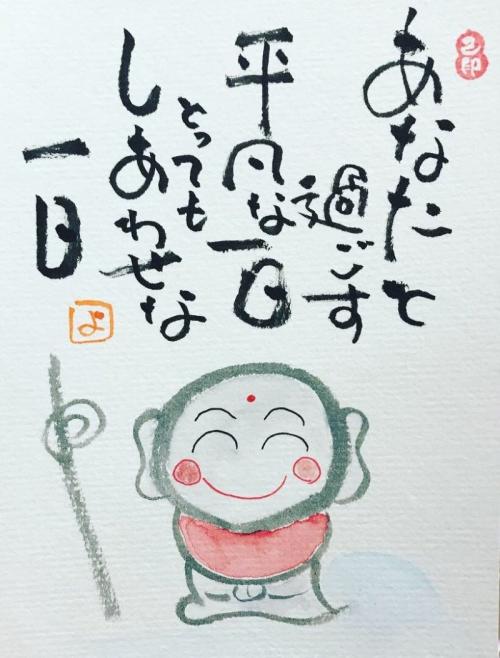 あなたと
過ごす
平凡な一日
とっても
しあわせな
一日
よ